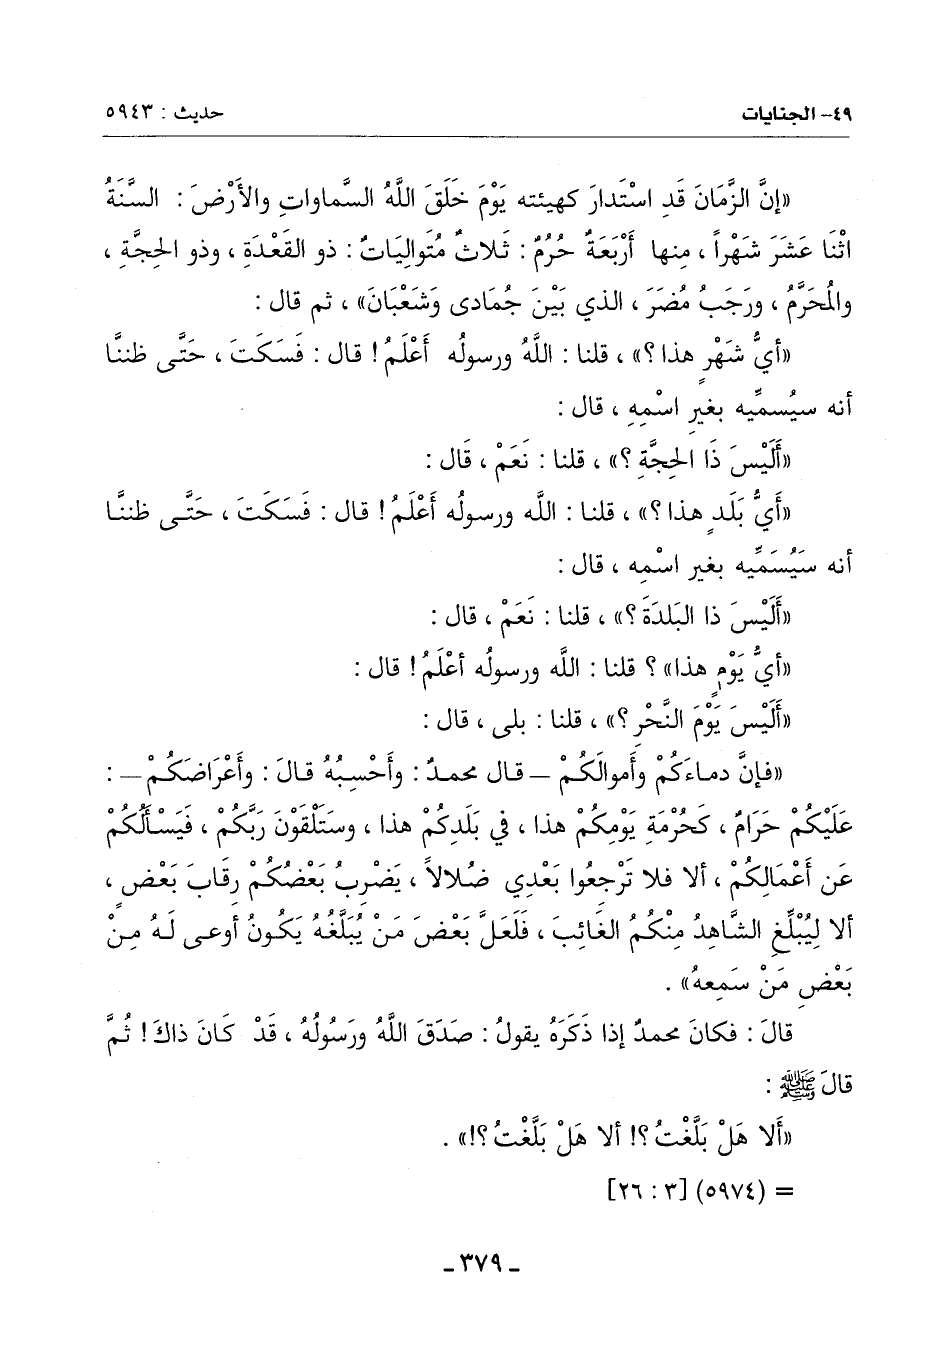 ٤٩- الجنايات حديث : ٥٩٤٣
«إنَّ الزَّمَانَ قَدِ اسْتَدارَ كهيئته يَوْمَ خَلَقَ اللَّهُ السَّماواتِ والأَرْضَ : السَّنَةُ
اثْنَا عَشَرَ شَهْراً ، مِنها أَرْبَعَةٌ حُرُمٌ : ثَلاثٌ مُتَوالِيَاتٌ : ذو القَعْدَةِ ، وذو الحِجَّةِ ،
والمُحَرَّمُ ، ورَجَبُ مُضَرَ ، الذي بَيْنَ جُمَادى وَشَعْبَانَ» ، ثم قال :
«أيُّ شَهْرٍ هذا ؟» ، قلنا : اللَّهُ ورسولُه أَعْلَمُ ! قال : فَسَكَتَ ، حَتَّى ظننَّا
أنه سيُسمِّيه بغيرِ اسْمِهِ ، قال :
«أَلَيْسَ ذَا الحِجَّةِ ؟» ، قلنا : نَعَمْ ، قَال :
«أَيُّ بَلَدٍ هذا ؟» ، قلنا : اللَّه ورسولُه أَعْلَمُ ! قال : فَسَكَتَ ، حَتَّى ظننَّا
أنه سَيُسَمِّيه بغيرِ اسْمِه ، قال :
«أَلَيْسَ ذا البَلدَةَ ؟» ، قلنا : نَعَمْ ، قال :
«أيُّ يَوْمٍ هذا» ؟ قلنا : اللَّه ورسولُه أعْلَمُ ! قال :
«أَلَيْسَ يَوْمَ النَّحْرِ ؟» ، قلنا : بلى ، قال :
«فإنَّ دماءَكُمْ وأَموالَكُمْ – قال محمدٌ : وأَحْسِبُهُ قالَ : وأَعْرَاضَكُمْ – :
عَلَيْكُمْ حَرَامٌ ، كَحُرْمَةِ يَوْمِكُمْ هذا ، في بَلَدِكُمْ هذا ، وستَلْقَوْنَ رَبَّكُمْ ، فَيَسْأَلُكُمْ
عَن أَعْمَالِكُمْ ، ألا فلا تَرْجعُوا بَعْدِي ضُلالاً ، يَضْرِبُ بَعْضُكُمْ رِقَابَ بَعْضٍ ،
ألا لِيُبَلِّغِ الشَّاهِدُ مِنْكُمُ الغَائِبَ ، فَلَعَلَّ بَعْضَ مَنْ يُبَلَّغُهُ يَكُونُ أوعى لَهُ مِنْ
بَعْضِ مَنْ سَمِعهُ» .
قالَ : فكانَ محمدٌ إذا ذَكَرَهُ يقولُ : صَدَقَ اللَّهُ ورَسُولُهُ ، قَدْ كَانَ ذاكَ ! ثُمَّ
قالَ ﷺ :
«أَلا هَلْ بَلَّغْتُ ؟! ألا هَلْ بَلَّغْتُ ؟!» .
= (٥٩٧٤) [٣ : ٢٦]
- ٣٧٩ -